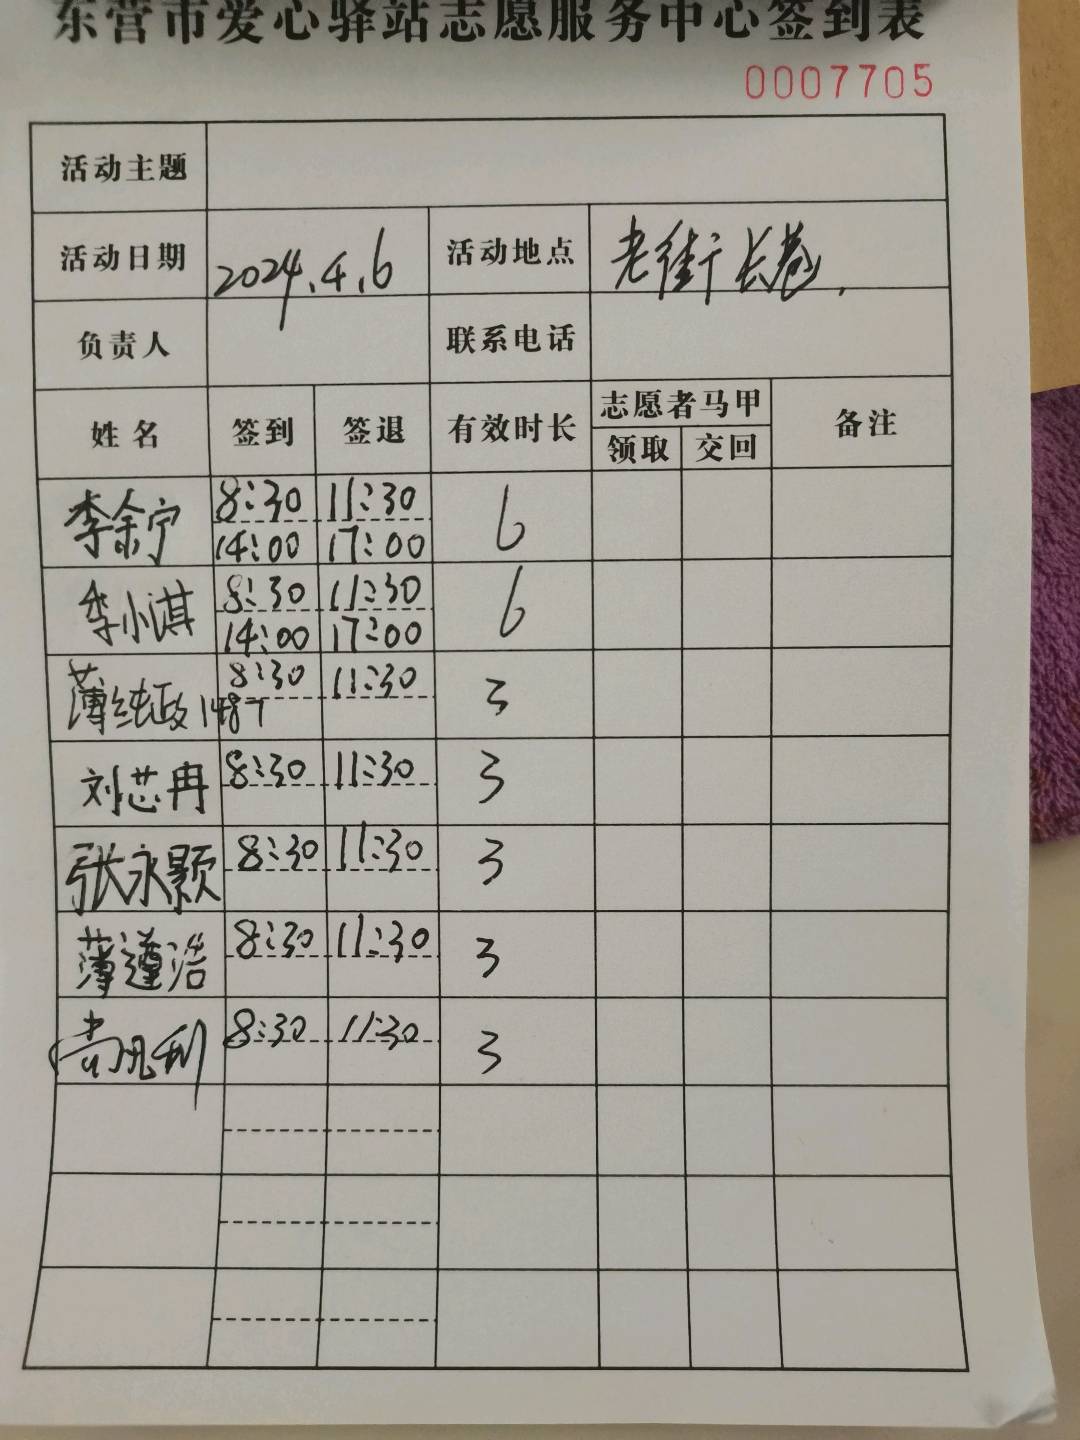 东营市爱心驿站志愿服务中心签到表
0007705
活动主题
活动日期 2024.4.6 活动地点 老街长卷
负责人 联系电话
姓名 签到 签退 有效时长 志愿者马甲 备注
领取 交回
李余宁 8:30 11:30 6
14:00 17:00
李小淇 8:30 11:30 6
14:00 17:00
薄纯政 1487 8:30 11:30 3
刘芯冉 8:30 11:30 3
张永颢 8:30 11:30 3
薄遵浩 8:30 11:30 3
8:30 11:30 3